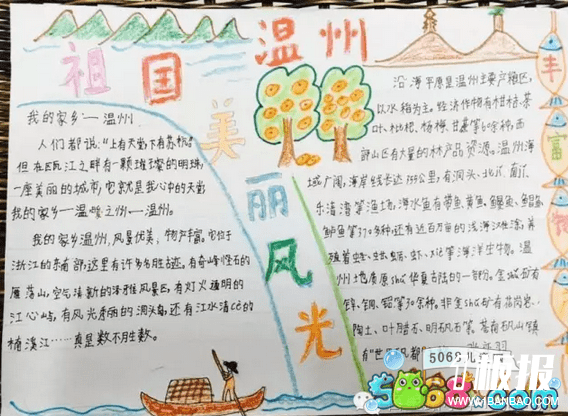 祖国
温州
美丽风光
丰富物
我的家乡——温州
人们都说:“上有天堂下有苏杭”
但在瓯江之畔有一颗璀璨的明珠,
一座美丽的城市,它就是我心中的天堂
我的家乡——温州。
我的家乡温州,风景优美,物产丰富。它位于
浙江的东南部,这里有许多名胜古迹,有奇峰怪石的
雁荡山,空气清新的泽雅风景区,有灯火通明的
江心屿,有风光秀丽的洞头岛,还有江水清澈的
楠溪江……真是数不胜数。
沿海平原是温州主要产粮区,
以水稻为主。经济作物有柑桔、茶
叶、枇杷、杨梅、甘蔗等60余种,西
部山区有大量的林产品资源。温州海
域广阔,海岸线长达355公里,有洞头、北几、南几、
乐清湾等渔场,海水鱼有带鱼、黄鱼、鳗鱼、鲳鱼
鲈鱼等370多种,还有近百万亩的浅海滩涂,养
殖着
等海洋生物。温
州地质属
华夏古陆的一部分。金
有
等30余种。非金
矿有
陶土、叶腊石、明矾石等。苍南矾山镇
有“世界矾都”
5068儿
极报
www.JIBANBAO.COM